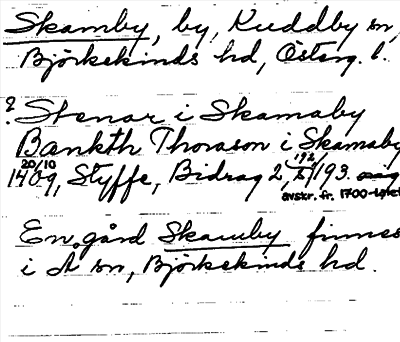 Skamby, by, Kuddby sn,
Björkekinds hd, Österg. l.
? Stenar i Skamaby
Bankth Thorason i Skamaby
20/10 1409, Styffe, Bidrag 2, 192/193. orig
avskr. fr. 1700-talet
En gård Skamby finnes
i d sn, Björkekinds hd.